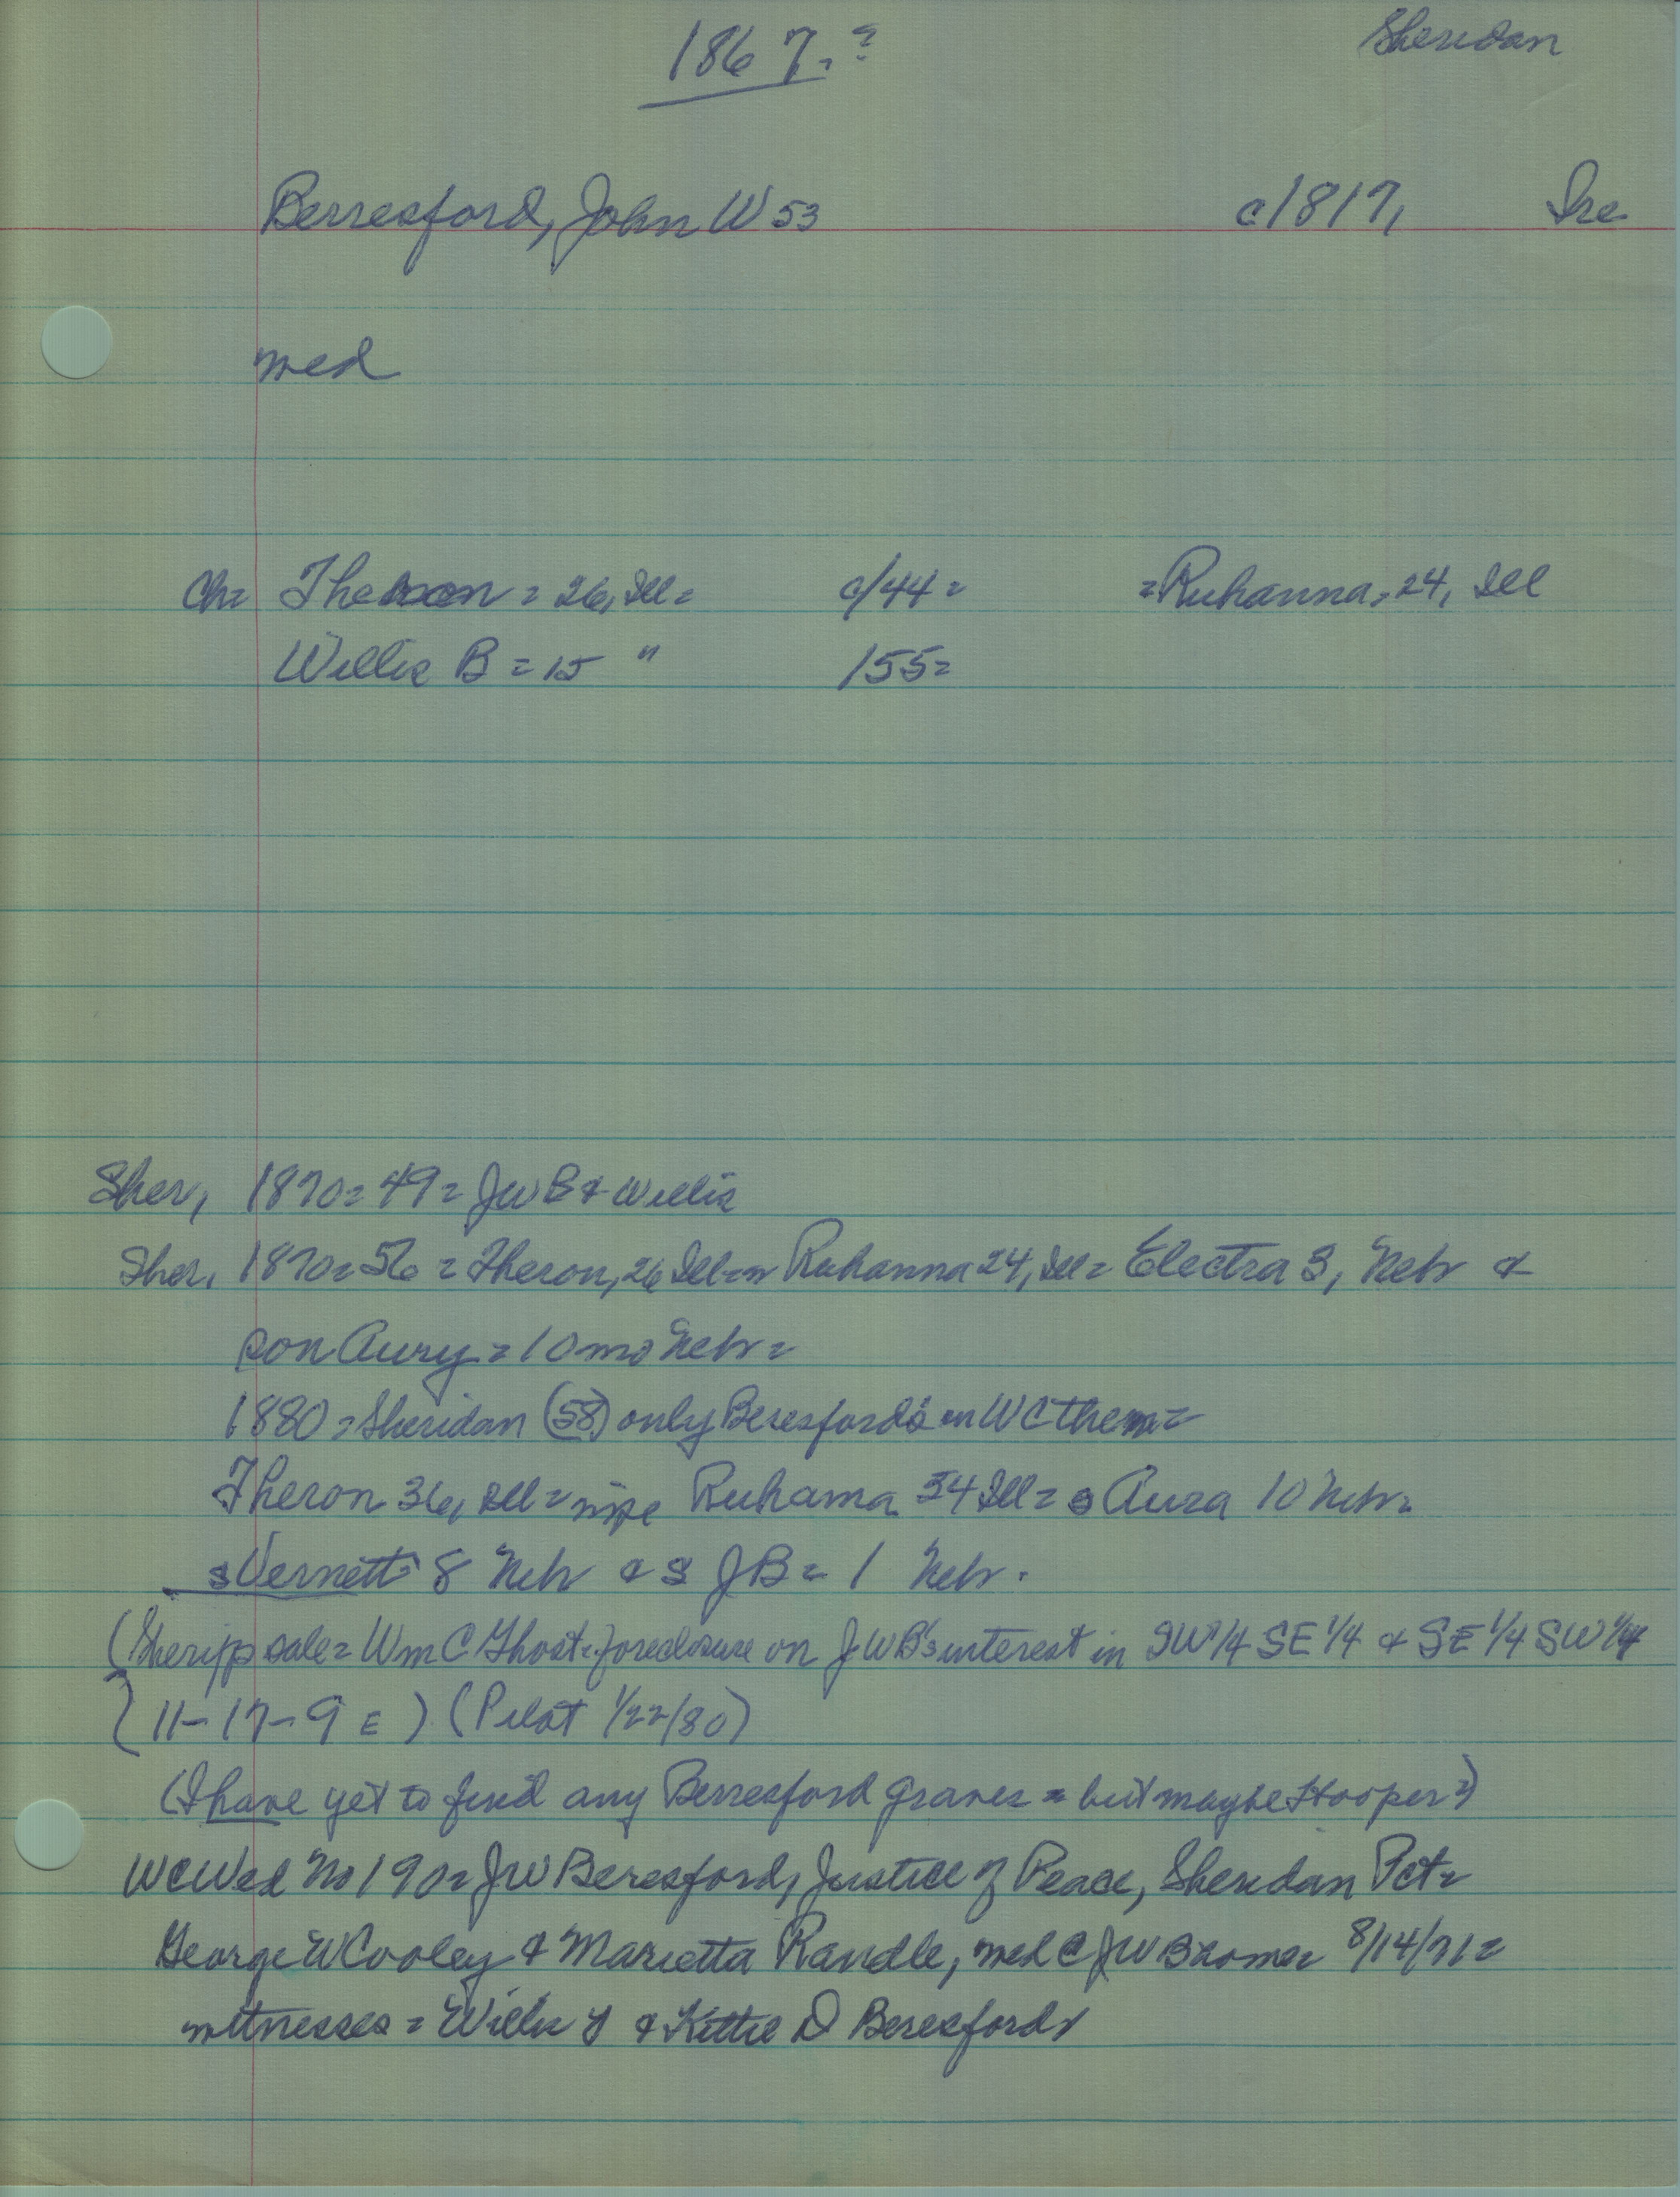 1867.?
Sheridan
Berresford, John W 53 c1817, Ire
med
Ch= Theron = 26, Ill= c/44= =Ruhanna, 24, Ill
Willis B = 15 " /55=
Sher, 1870= 49= JWB & Willis
Sher, 1870=56 = Theron, 26 Ill= Ruhanna 24, Ill= Electra 3, Nebr &
son Aury = 10 mo Nebr=
1880 = Sheridan (58) only Beresford's on WC then=
Theron 36, Ill= wife Ruhama 34 Ill= s Aura 10 Nebr=
s Vernett 8 Nebr & s JB= 1 Nebr.
(Sheriff sale= Wm C Ghost= foreclosure on JWB's interest in SW 1/4 SE 1/4 & SE 1/4 SW 1/4
11-17-9 E) (Pilot 1/22/80)
(I have yet to find any Berresford graves = but maybe Hooper=)
WC Wed No 190= JW Beresford, Justice of Peace, Sheridan Pct=
George W Cooley & Marietta Randle, med @ JWB home= 8/14/71=
witnesses = Willis & Kittie D Beresford